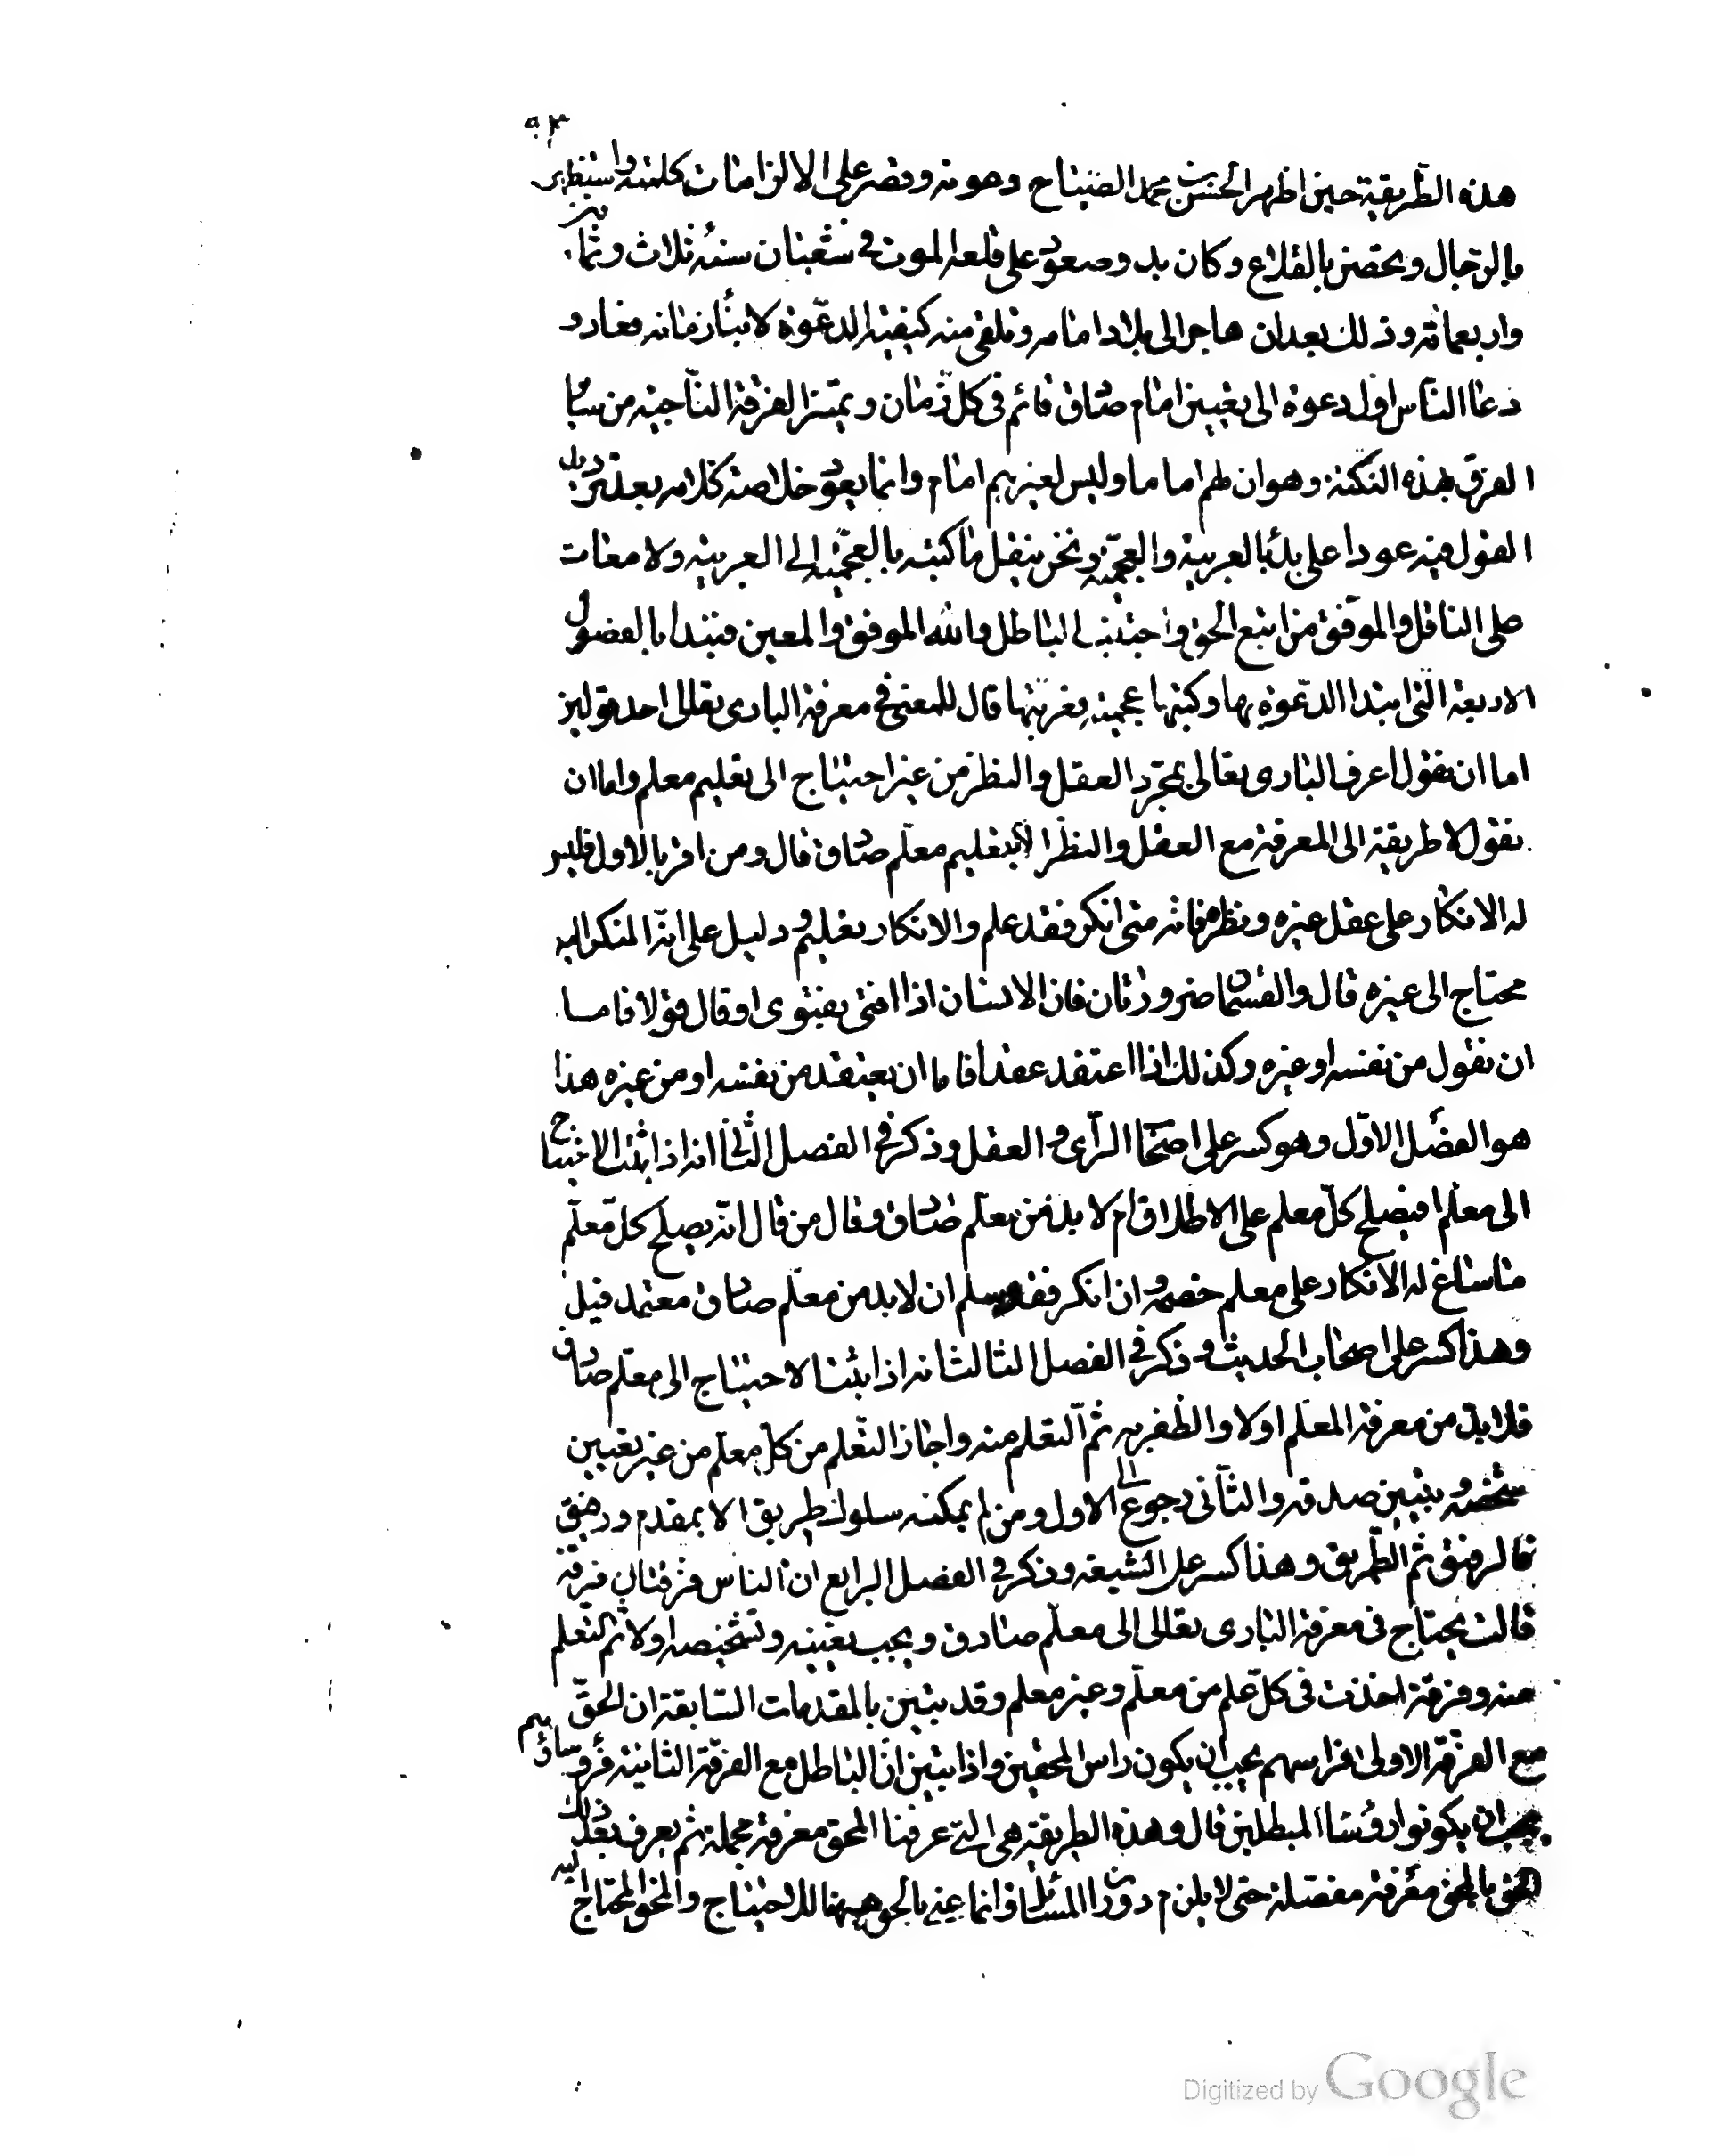 ٩٣
هذه الطريقة حين اظهر الحسن بن محمد الصباح دعوته وقصر على الالزامات كلمته واستظهر
بالرجال وتحصن بالقلاع وكان بدو صعوده على قلعة الموت في شعبان سنة ثلاث وثمانين
واربعمائة وذلك بعد ان هاجر الى بلاد امامه وتلقى منه كيفية الدعوة لابناء زمانه فعاد و
دعا الناس اول دعوة الى تعيين امام صادق قائم في كل زمان وتميز الفرقة الناجية من ساير
الفرق بهذه النكتة وهو ان لهم اماما وليس لغيرهم امام وانما يعود خلاصة كلامه بعد ترديد
القول فيه عودا على بدء بالعربية والعجمية ونحن ننقل ما كتبه بالعجمية الى العربية ولا معات
على الناقل والموفق من اتبع الحق واجتنب الباطل والله الموفق والمعين فنبتدا بالفصول
الاربعة التي ابتدا الدعوة بها وكتبها عجمية فعربتها قال للمفتى في معرفة البارى تعالى احد قولين
اما ان نقول اعرف البارى تعالى بمجرد العقل والنظر من غير احتياج الى تعليم معلم واما ان
نقول لا طريقة الى المعرفة مع العقل والنظر الا بتعليم معلم صادق قال ومن افتى بالاول فليس
له الانكار على عقل غيره ونظره فانه متى انكر فقد علم والانكار تعليم ودليل على ان المنكر اليه
محتاج الى غيره قال والقسمان ضروريان فان الانسان اذا افتى بفتوى او قال قولا فاما
ان نقول من نفسه او غيره وكذلك اذا اعتقد عقدا فاما ان يعتقد من نفسه او من غيره هذا
هو الفصل الاول وهو كسر على اصحاب الرأى و العقل وذكر في الفصل الثاني انه اذا ثبت الاحتياج
الى معلم افيصلح كل معلم على الاطلاق ام لا بد من معلم صادق وقال من قال انه يصلح كل معلم
ما ساغ له الانكار على معلم خصمه وان انكر فقد سلم ان لا بد من معلم صادق معتمد قيل
وهذا كسر على اصحاب الحديث وذكر في الفصل الثالث انه اذا ثبت الاحتياج الى معلم صادق
فلا بد من معرفة المعلم اولا والظفر به ثم التعلم منه واجاز التعلم من كل معلم من غير تعيين
شخصه وتبيين صدقه والثانى رجوع الى الاول ومن لم يمكنه سلوك طريق الا بمقدم ورفيق
فالرفيق ثم الطريق وهذا كسر على الشيعة وذكر في الفصل الرابع ان الناس فرقتان فرقة
قالت يحتاج فى معرفة البارى تعالى الى معلم صادق ويجب تعيينه وتشخيصه اولا ثم التعلم
منه وفرقة اخذت فى كل علم من معلم وغير معلم وقد تبين بالمقدمات السابقة ان الحق
مع الفرقة الاولى فراسهم يجب ان يكون راس المحقين واذا تبين ان الباطل مع الفرقة الثانية فرؤساؤهم
يجب ان يكونوا رؤسا المبطلين قال وهذه الطريقة هى التي عرفنا المحق معرفة مجملة ثم يعرف بعد ذلك
الحق بالمحق معرفة مفصلة حتى لا يلزم دوران المسائل وانما عنى بالحق هيهنا للاحتياج والمحق المحتاج اليه
Digitized by Google